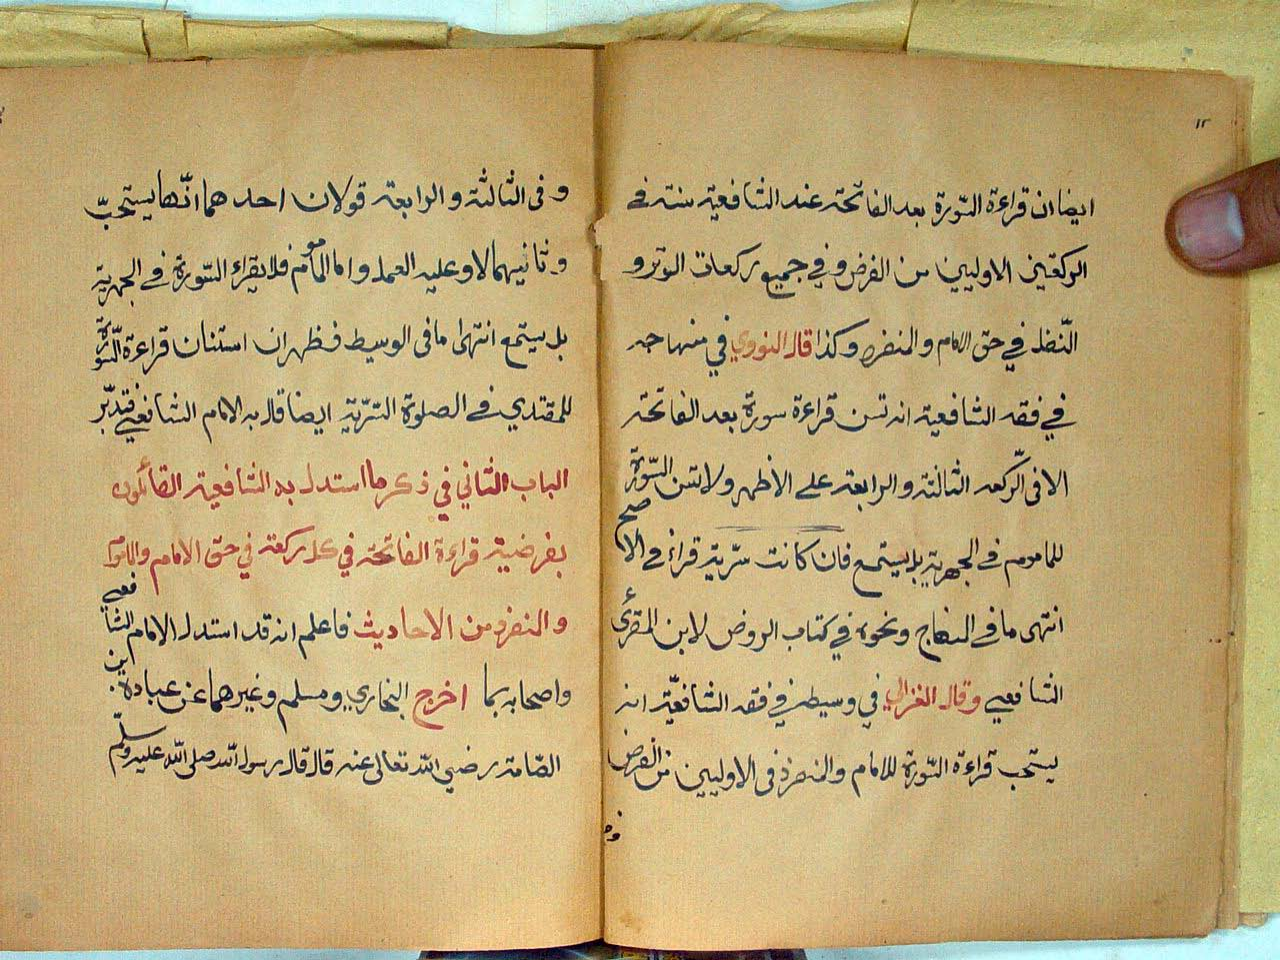 ١٢
ايضا ان قراءة السّورة بعد الفاتحة عند الشافعية سنة في
الركعتين الاوليين من الفرض وفي جميع ركعات الوتر و
النّفل في حق الامام والمنفرد وكذا قال النووي في منهاجه
في فقه الشافعية انه تسن قراءة سورة بعد الفاتحة
الا في الرّكعة الثالثة والرابعة على الأظهر ولا تسن السّورة
للماموم في الجهرية بل يستمع فان كانت سرّية قرأ في الاصح
انتهى ما في المنهاج ونحوه في كتاب الروض لابن المقرئ
الشافعي وقال الغزالي في وسيطه في فقه الشافعيّة انه
يستحب قراءة السّورة للامام والمنفرد في الاوليين من الفرض
وفي الثالثة والرابعة قولان احدهما انّها يستحبّ
وثانيهما لا وعليه العمل واما المأموم فلا يقراء السّورة في الجهرية
بل يستمع انتهى ما في الوسيط فظهر ان استنان قراءة السّورة
للمقتدي في الصلوة السّرّية ايضا قال به الامام الشافعي فتدبّر
الباب الثاني في ذكر ما استدل به الشافعية القائلون
بفرضية قراءة الفاتحة في كل ركعة في حق الامام والماموم
والمنفرد من الاحاديث فاعلم انه قد استدل الامام الشافعي
واصحابه بما اخرج البخاري ومسلم وغيرهما عن عبادة بن
الصّامت رضي الله تعالى عنه قال قال رسول الله صلى الله عليه وسلّم